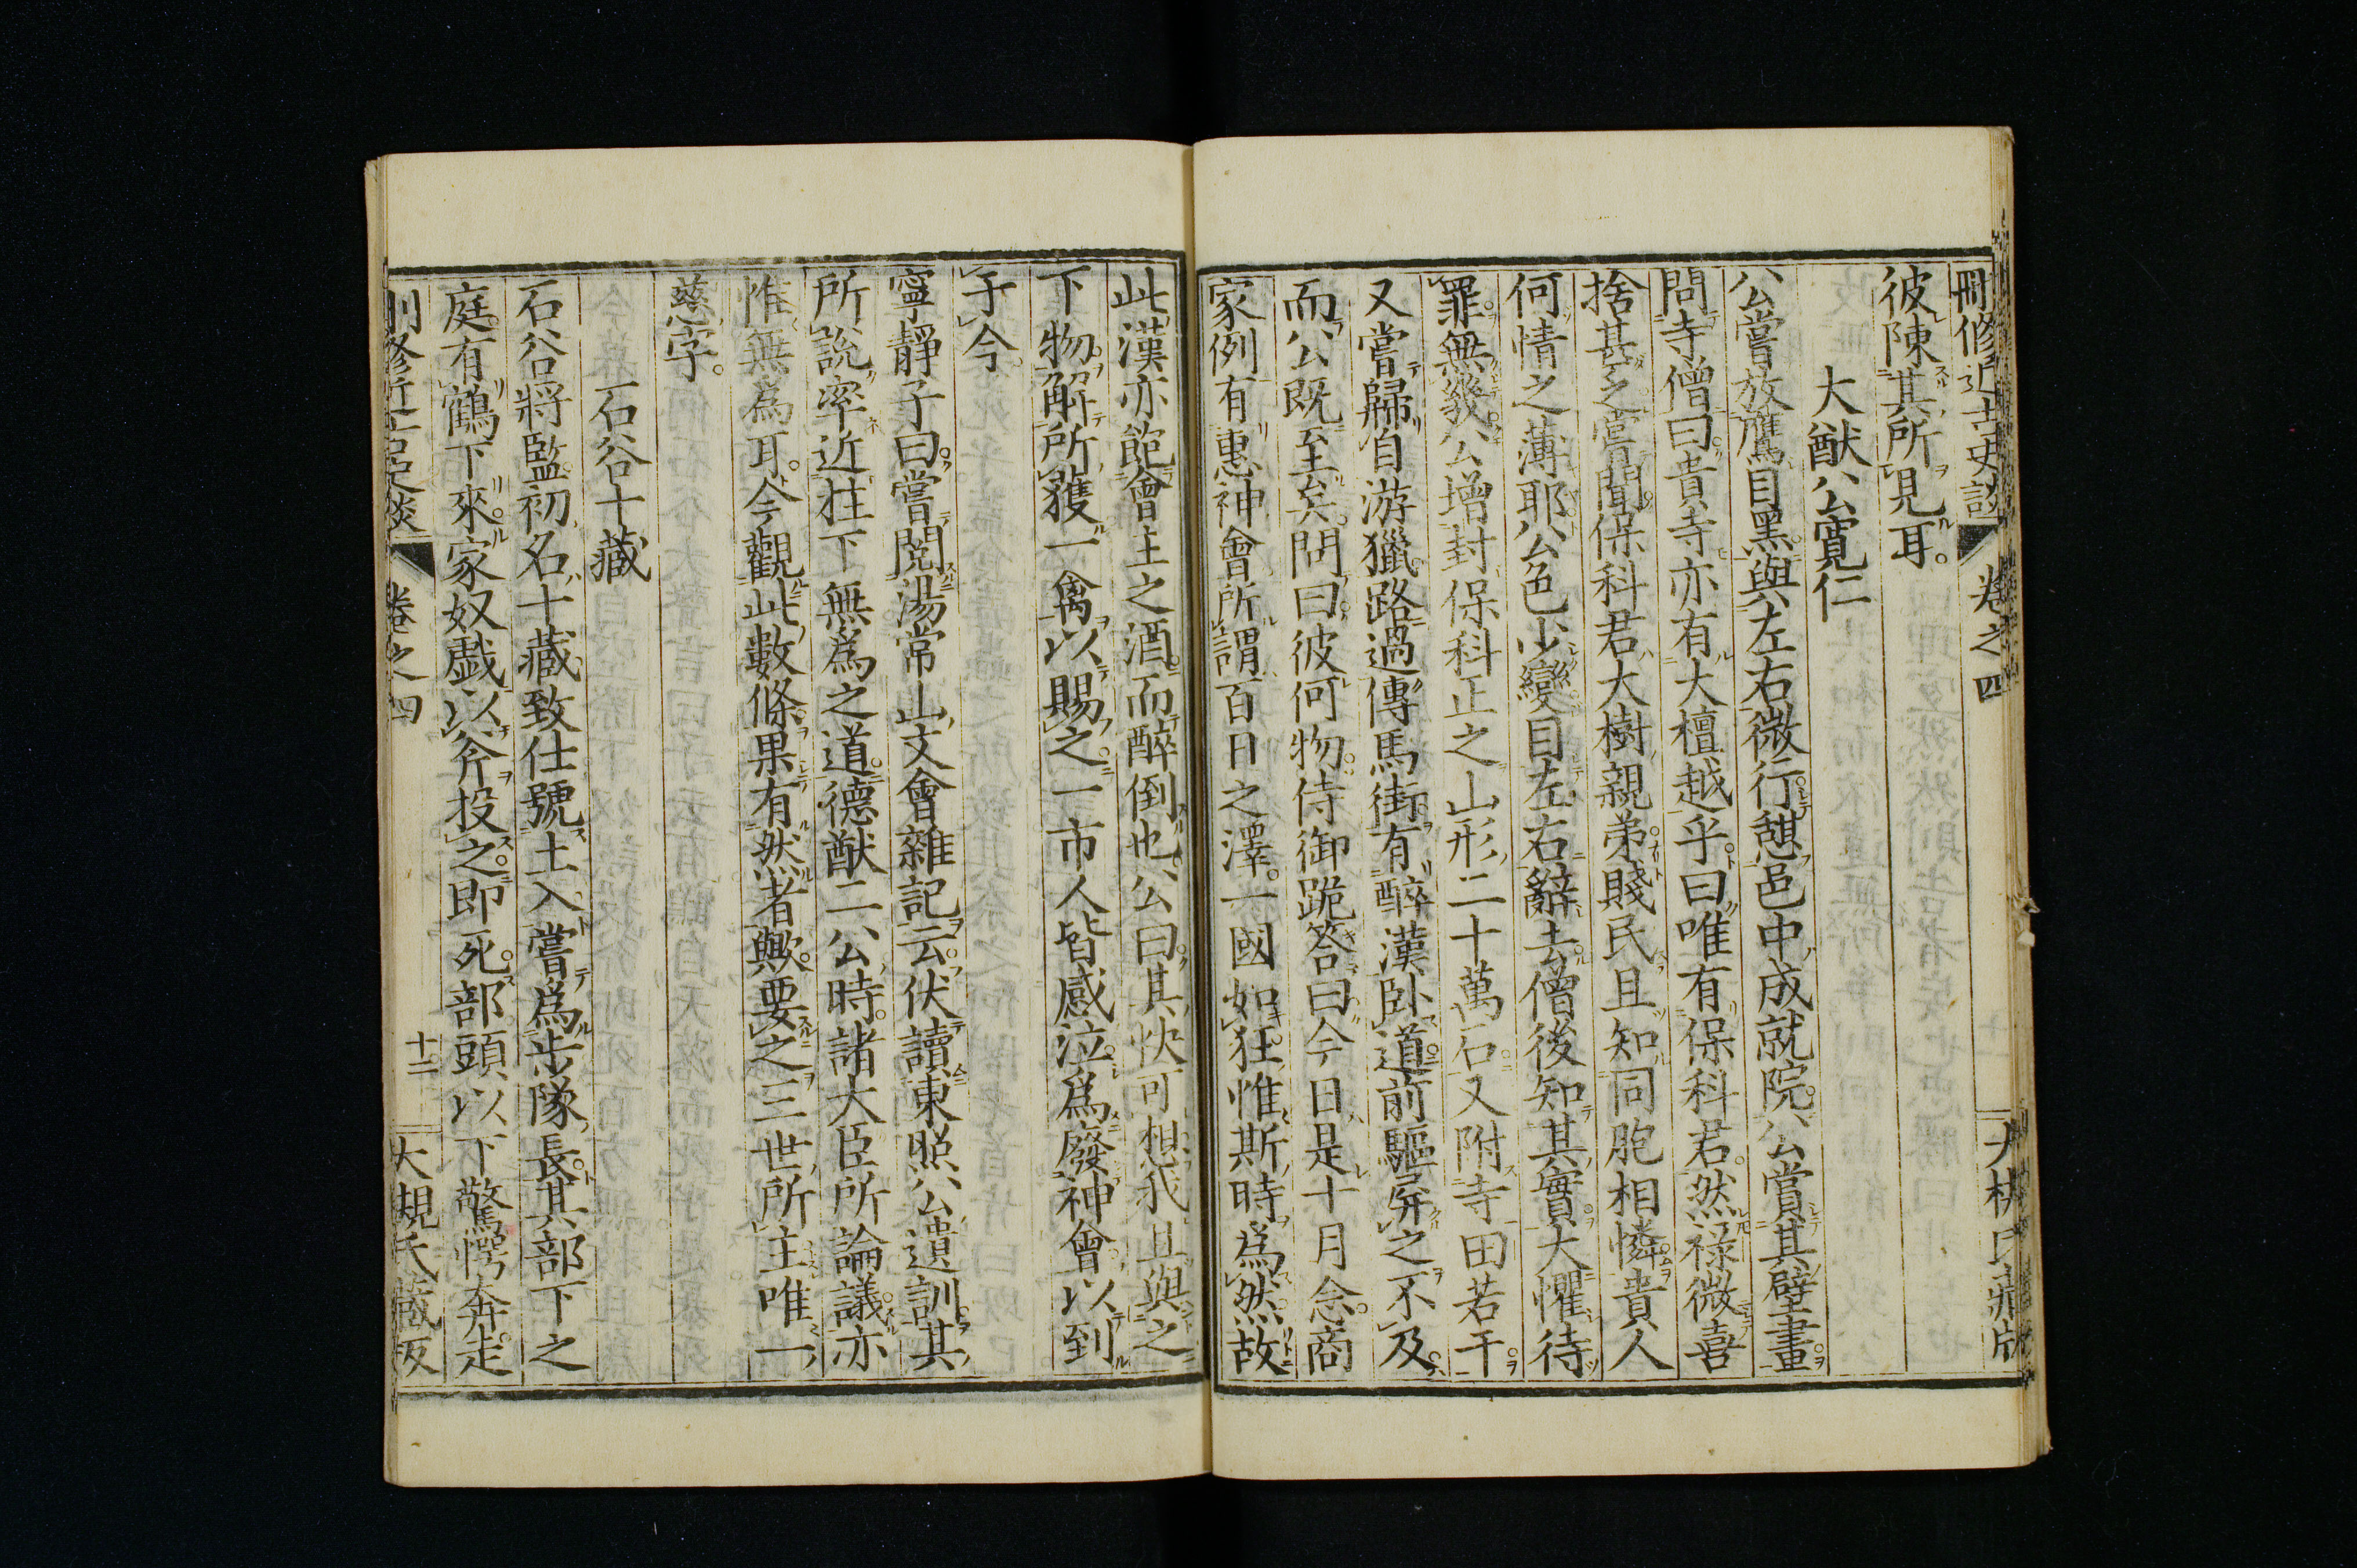 刪修近古史談 卷之四 大槻氏藏版
彼陳其所見耳。
大猷公寬仁
公嘗放鷹目黑與左右微行憩邑中成就院公賞其壁畫
問寺僧曰貴寺亦有大檀越乎曰唯有保科君然祿微喜
捨甚乏嘗聞保科君大樹親弟賤民且知同胞相憐貴人
何情之薄耶公色少變目左右辭去僧後知其實大懼待
罪無幾公增封保科正之山形二十萬石又附寺田若干
又嘗歸自游獵路過傳馬街有醉漢臥道前驅屏之不及
而公既至矣問曰彼何物侍御跪答曰今日是十月念商
家例有惠神會所謂百日之澤一國如狂惟斯時爲然故
此漢亦飽會主之酒而醉倒也公曰其快可想我且與之
下物解所獲一禽以賜之一市人皆感泣爲廢神會以到
于今
寧靜子曰嘗閱湯常山文會雜記云伏讀東照公遺訓其
所說率近柱下無爲之道德猷二公時諸大臣所論議亦
惟無爲耳今觀此數條果有然者歟要之三世所主唯一
慈字。
石谷十藏
石谷將監初名十藏致仕號土入嘗爲步隊長其部下之
庭有鶴下來家奴戲以斧投之即死部頭以下驚愕奔走
刪修近古史談 卷之四 十二 大槻氏藏版